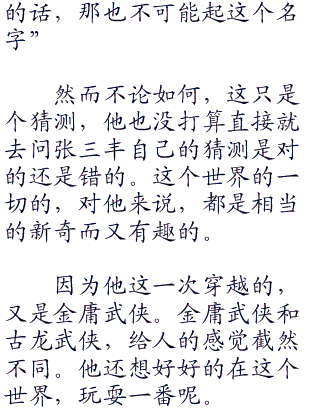 的话，那也不可能起这个名
字”
然而不论如何，这只是
个猜测，他也没打算直接就
去问张三丰自己的猜测是对
的还是错的。这个世界的一
切的，对他来说，都是相当
的新奇而又有趣的。
因为他这一次穿越的，
又是金庸武侠。金庸武侠和
古龙武侠，给人的感觉截然
不同。他还想好好的在这个
世界，玩耍一番呢。